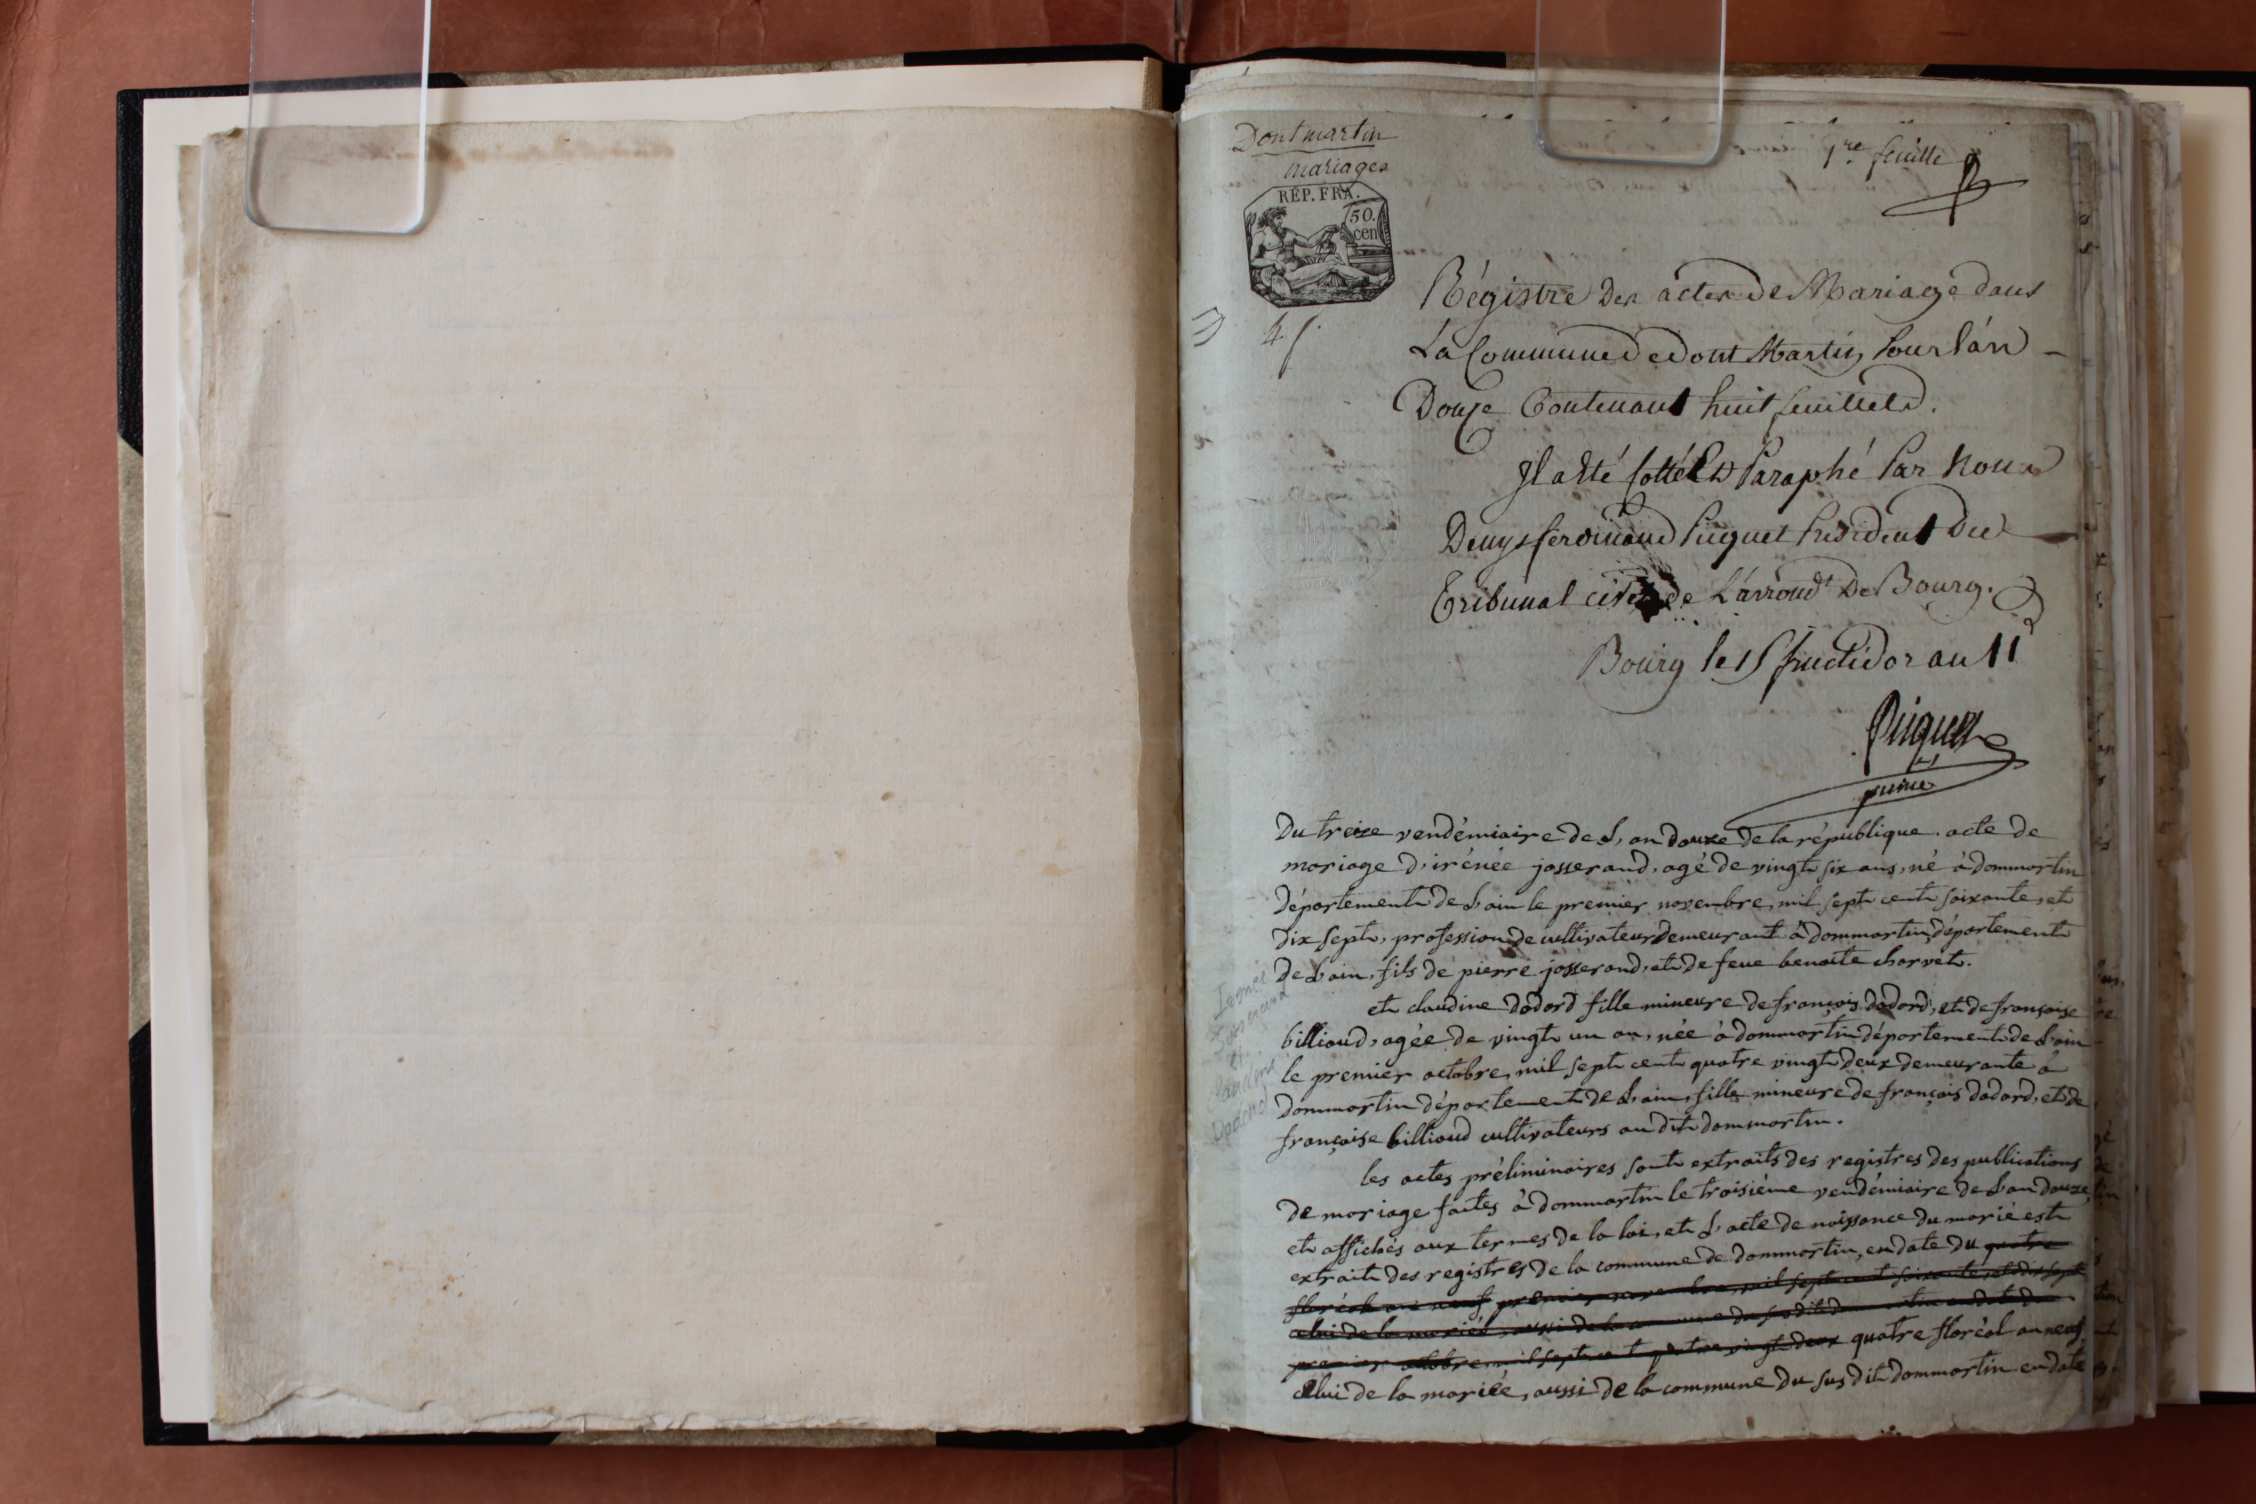 Dontmartin
mariages
1re feuille
REP. FRA.
50.
cen
Régistre Des actes de Mariage dans
La Commune de dont Martin Pour l'an
Douze Contenant huit feuillets.
Il a Eté Cotté Et Paraphé Par Nous
Denys ferdinand Piquet President Du
Tribunal civil de L'arrondt De Bourg.
Bourg le 15 fructidor an 11
Piquet
Du treize vendémiaire de L'an douze de la république. acte de
mariage d'irénée josserand, agé de vingt six ans, né à dommartin
département de L'ain le premier novembre, mil sept cent soixante, et
dix sept, profession de cultivateur demeurant à dommartin département
de L'ain, fils de pierre josserand, et de feue benoite charvet.
Josserand
et
Claudine
et claudine dodord fille mineure de françois dodord, et de françoise
billioud, agée de vingt un an, née à dommartin département de L'ain
le premier octobre, mil sept cent quatre vingt deux demeurante à
dommartin département de L'ain, fille mineure de françois dodord, et de
françoise billioud cultivateurs au dit dommartin.
les actes préliminaires sont extraits des registres des publications
de mariage faites à dommartin le troisiéme vendémiaire de L'an douze,
et affichés aux termes de la loi, et L'acte de naissance du marié est
extrait des registres de la commune de dommartin, en date du quatre
floréal an neuf premier novembre, mil sept cent soixante, et dix sept
celui de la mariée, aussi de la commune du susdit dommartin en date du
premier octobre mil sept cent quatre vingt deux quatre floréal an neuf
celui de la mariée, aussi de la commune du susdit dommartin en date